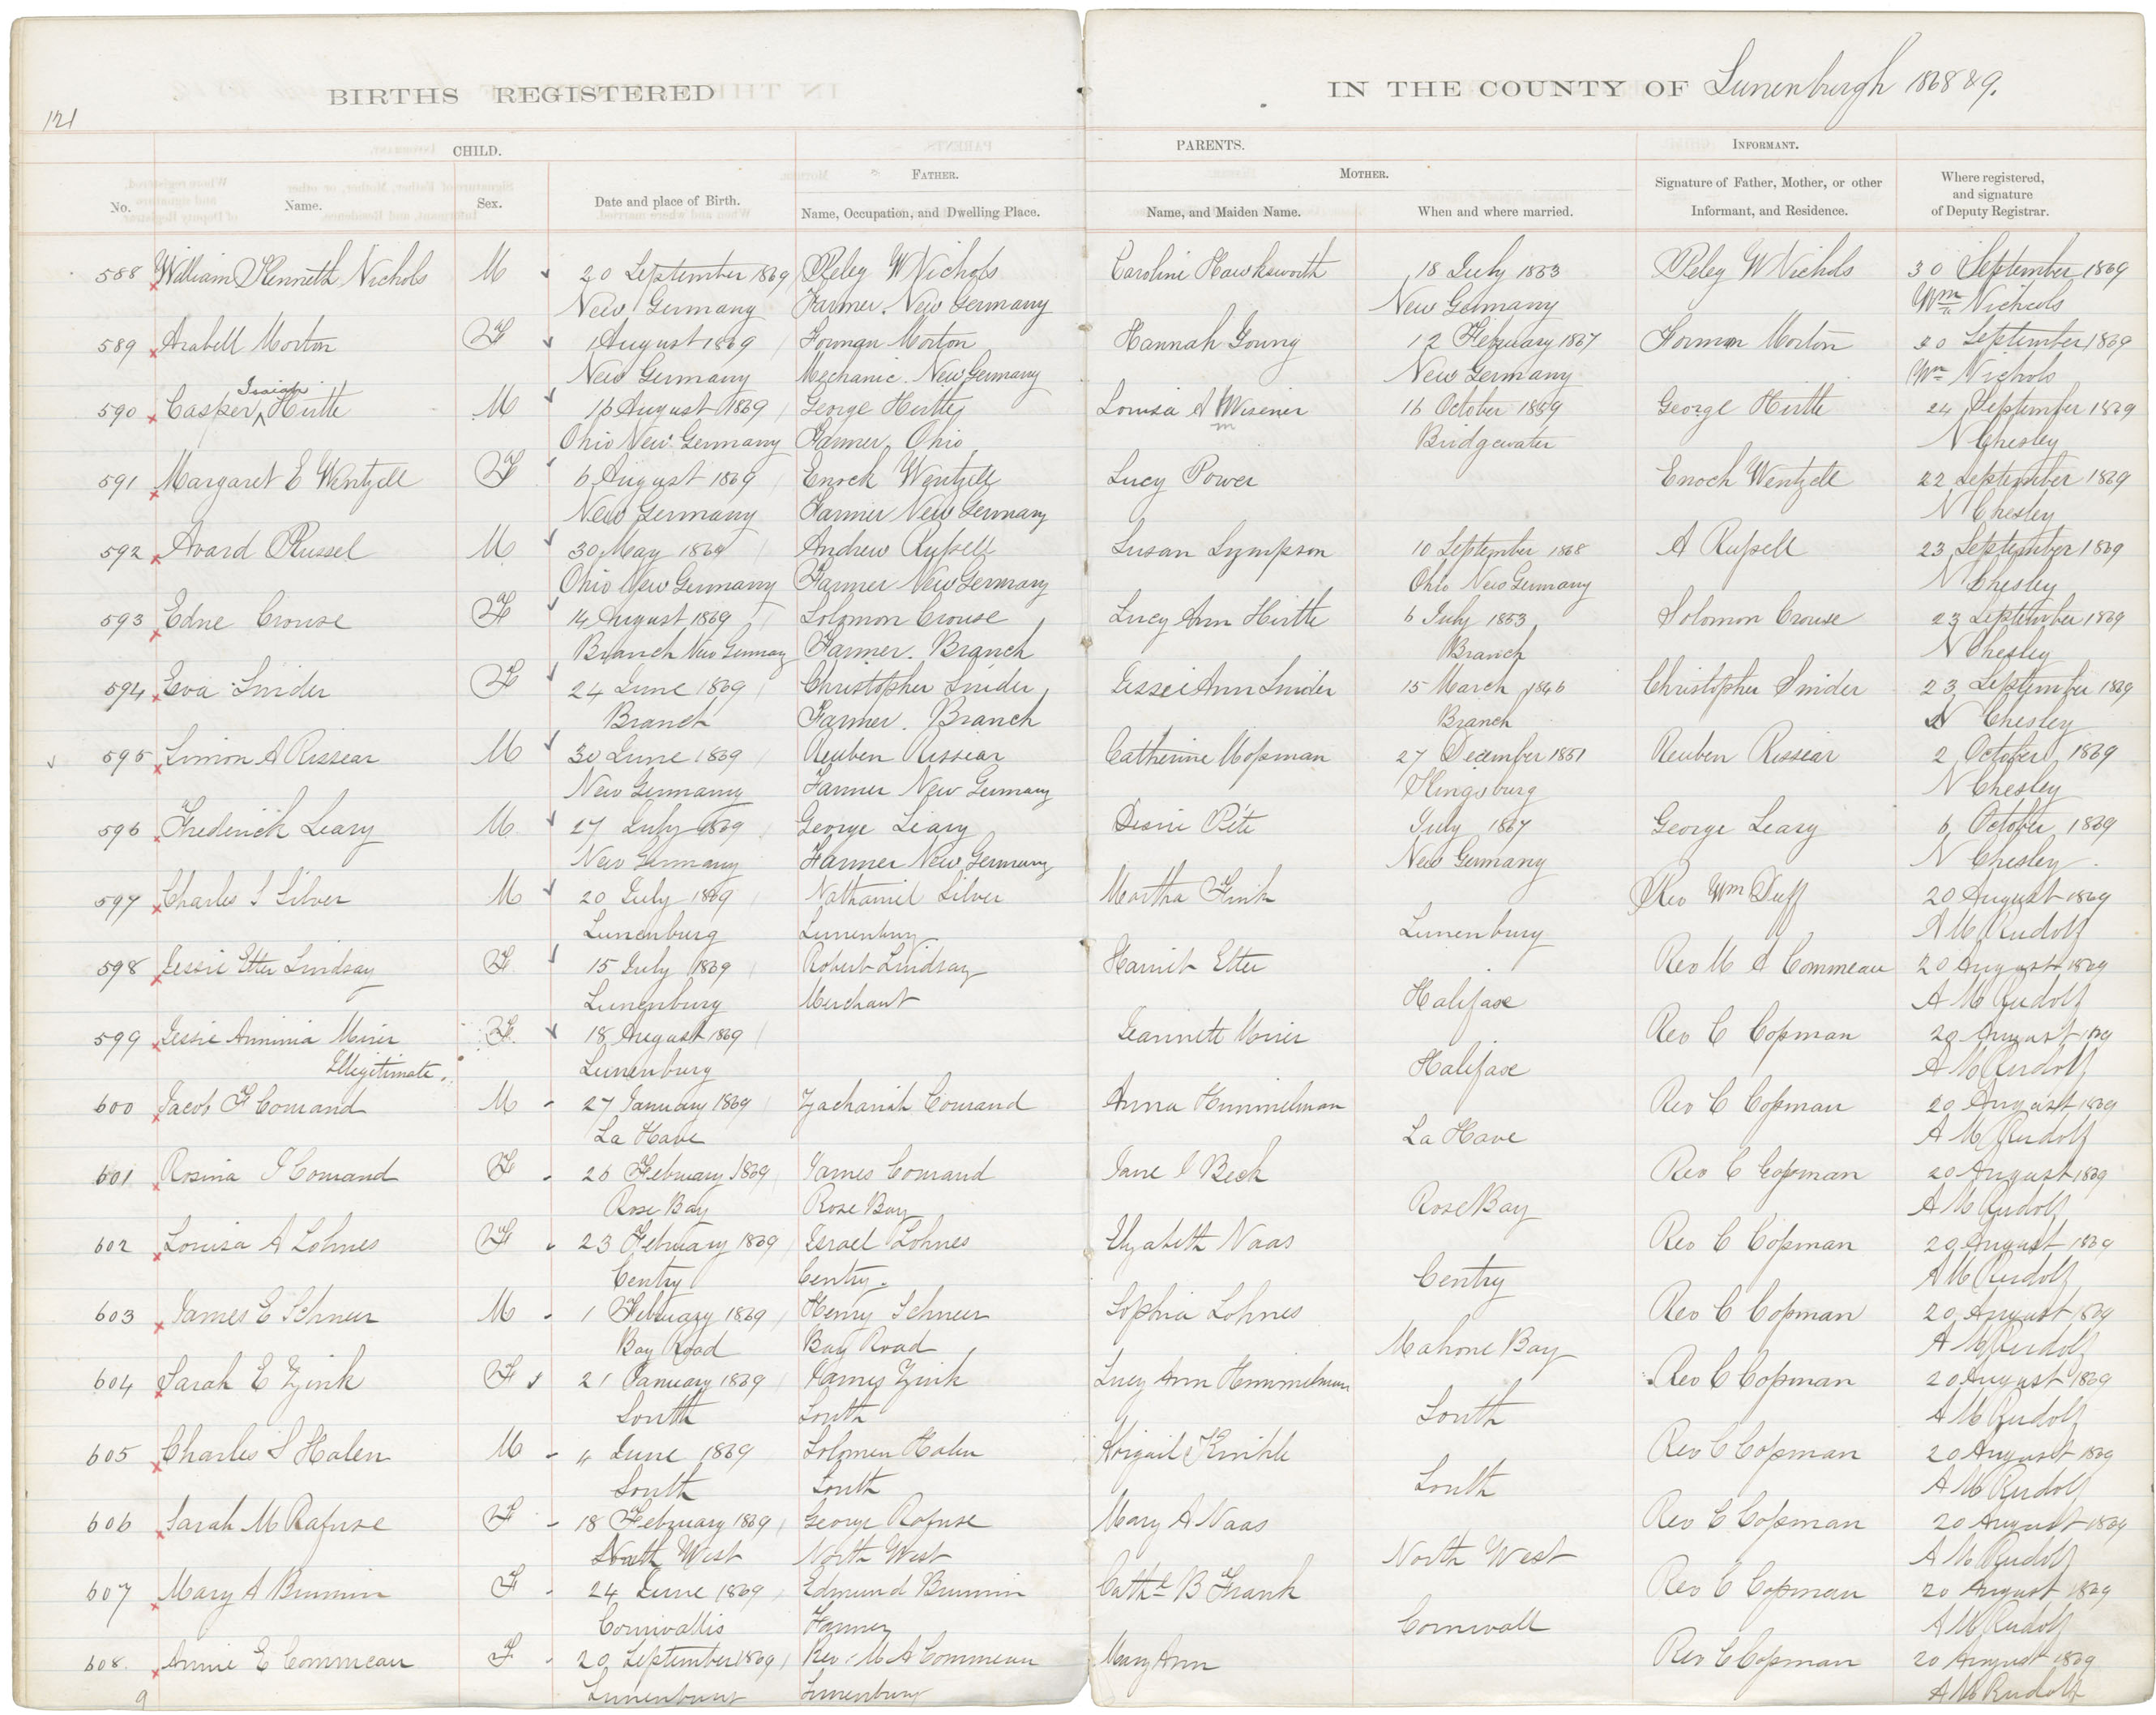 BIRTHS REGISTERED
IN THE COUNTY OF Lunenburgh 1868 & 9.
121
CHILD.
PARENTS.
INFORMANT.
No.
Name.
Sex.
Date and place of Birth.
FATHER.
Name, Occupation, and Dwelling Place.
MOTHER.
Name, and Maiden Name.
When and where married.
Signature of Father, Mother, or other
Informant, and Residence.
Where registered,
and signature
of Deputy Registrar.
588 William Kenneth Nichols M 20 September 1869 Peleg W Nichols Caroline Hawksworth 18 July 1853 Peleg W Nichols 30 September 1869
New Germany Farmer. New Germany New Germany Wm Nichols
589 Arabell Morton F 1 August 1869 Forman Morton Hannah Young 12 February 1867 Forman Morton 20 September 1869
New Germany Mechanic. New Germany New Germany Wm Nichols
590 Casper Isaiah Hirtle M 16 August 1869 George Hirtle Louisa A Wisener 16 October 1859 George Hirtle 24 September 1869
m
Ohio New Germany Farmer, Ohio Bridgewater N Chesley
591 Margaret E Wentzell F 6 August 1869 Enoch Wentzell Lucy Power Enoch Wentzell 22 September 1869
New Germany Farmer New Germany N Chesley
592 Avard Russel M 30 May 1869 Andrew Russell Susan Sympson 10 September 1868 A Russell 23 September 1869
Ohio New Germany Farmer New Germany Ohio New Germany N Chesley
593 Edne Crouse F 14 August 1869 Solomon Crouse Lucy Ann Hirtle 6 July 1853 Solomon Crouse 23 September 1869
Branch New Germany Farmer. Branch Branch N Chesley
594 Eva Snider F 24 June 1869 Christopher Snider Jessie Ann Snider 15 March 1846 Christopher Snider 23 September 1869
Branch Farmer. Branch Branch N Chesley
595 Simon A Rissear M 30 June 1869 Reuben Rissear Catherine Mossman 27 December 1851 Reuben Rissear 2 October 1869
New Germany Farmer New Germany Kingsburg N Chesley
596 Frederick Leary M 27 July 1869 George Leary July 1867 George Leary 6 October 1869
New Germany Farmer New Germany New Germany N Chesley
597 Charles S Silver M 20 July 1869 Nathaniel Silver Martha Rev Wm Duff 20 August 1869
Lunenburg Lunenburg Lunenburg A M Rudolf
598 Jessie Etter Lindsay F 15 July 1869 Robert Lindsay Harriet Etter Rev M A Commeau 20 August 1869
Lunenburg Merchant Halifax A M Rudolf
599 Jessie F 18 August 1869 Rev C Cossman 20 August 1869
Illegitimate. Lunenburg Halifax A M Rudolf
600 Jacob F Conrand M 27 January 1869 Zachariah Conrand Anna Himmelman Rev C Cossman 20 August 1869
La Have La Have A M Rudolf
601 Rosina Conrand F 26 February 1869 James Conrand Jane Beck Rev C Cossman 20 August 1869
Rose Bay Rose Bay Rose Bay A M Rudolf
602 Louisa A Lohnes F 23 February 1869 Israel Lohnes Elizabeth Naas Rev C Cossman 20 August 1869
Centry Centry. Centry A M Rudolf
603 James E Schneer M 1 February 1869 Henry Schneer Sophia Lohnes Rev C Cossman 20 August 1869
Bay Road Bay Road Mahone Bay A M Rudolf
604 Sarah E Zink F 21 January 1869 James Zink Lucy Ann Himmelman Rev C Cossman 20 August 1869
South South South A M Rudolf
605 Charles S Halen M " June 1869 Solomen Halen Abigail Rev C Cossman 20 August 1869
South South South A M Rudolf
606 Sarah M Rafuse F 18 February 1869 George Rafuse Mary A Naas Rev C Cossman 20 August 1869
North West North West North West A M Rudolf
607 Mary A Brumin F 24 June 1869 Edmund Brumin Cathe B Frank Rev C Cossman 20 August 1869
Cornwallis Farmer Cornwall A M Rudolf
608. Annie E Commeau F 20 September 1869 Rev. M A Commeau Mary Ann Rev C Cossman 20 August 1869
Lunenburg Lunenburg A M Rudolf
9